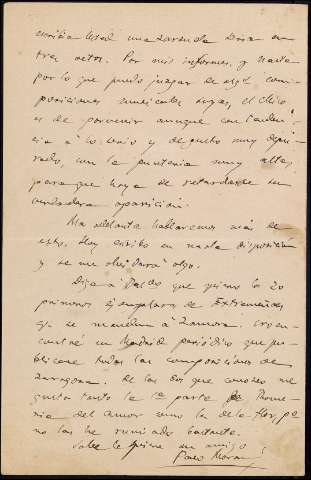 Usted una zarzuela Dora en
tres actos. Por mis informes, y hasta
por lo que puedo juzgar de algs. com-
posiciones musicales suyas, el chico
es de porvenir aunque con tenden-
cia a lo vario y de gusto muy depu-
rado, con la puntería muy alta,
para que haya de retardarse su
verdadera aparición.
Más adelante hablaremos más de
esto. Hoy escribo en mala disposición
y se me olvidará algo.
Diga a que quiero los 20
primeros ejemplares de Extremeñas
que se manden a Zamora.
en Madrid periódico que pu-
blicase todas las composiciones de
Zaragoza. De las dos que conozco me
gusta tanto la 1ª parte
del amor como la de la flor, pe
no las he rumiado bastante.
Sabe le quiere un amigo